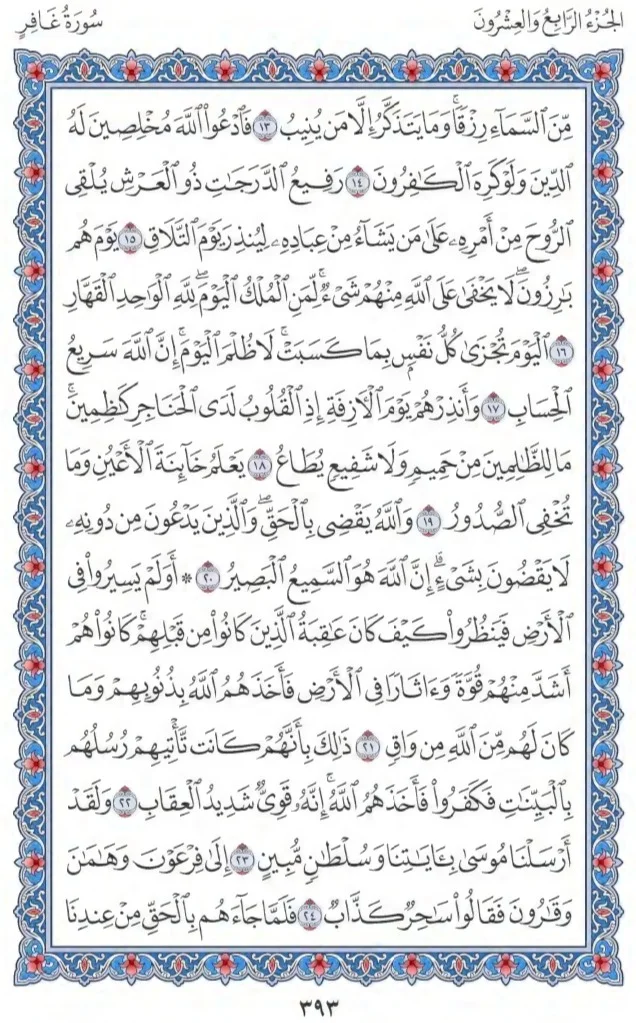 الجُزْءُ الرَّابِعُ وَالعِشْرُونَ
سُورَةُ غَافِرٍ
مِّنَ ٱلسَّمَآءِ رِزۡقٗاۚ وَمَا يَتَذَكَّرُ إِلَّا مَن يُنِيبُ ١٣ فَٱدۡعُواْ ٱللَّهَ مُخۡلِصِينَ لَهُ
ٱلدِّينَ وَلَوۡ كَرِهَ ٱلۡكَٰفِرُونَ ١٤ رَفِيعُ ٱلدَّرَجَٰتِ ذُو ٱلۡعَرۡشِ يُلۡقِي
ٱلرُّوحَ مِنۡ أَمۡرِهِۦ عَلَىٰ مَن يَشَآءُ مِنۡ عِبَادِهِۦ لِيُنذِرَ يَوۡمَ ٱلتَّلَاقِ ١٥ يَوۡمَ هُم
بَٰرِزُونَۖ لَا يَخۡفَىٰ عَلَى ٱللَّهِ مِنۡهُمۡ شَيۡءٞۚ لِّمَنِ ٱلۡمُلۡكُ ٱلۡيَوۡمَۖ لِلَّهِ ٱلۡوَٰحِدِ ٱلۡقَهَّارِ
١٦ ٱلۡيَوۡمَ تُجۡزَىٰ كُلُّ نَفۡسِۭ بِمَا كَسَبَتۡۚ لَا ظُلۡمَ ٱلۡيَوۡمَۚ إِنَّ ٱللَّهَ سَرِيعُ
ٱلۡحِسَابِ ١٧ وَأَنذِرۡهُمۡ يَوۡمَ ٱلۡأٓزِفَةِ إِذِ ٱلۡقُلُوبُ لَدَى ٱلۡحَنَاجِرِ كَٰظِمِينَۚ
مَا لِلظَّٰلِمِينَ مِنۡ حَمِيمٖ وَلَا شَفِيعٖ يُطَاعُ ١٨ يَعۡلَمُ خَآئِنَةَ ٱلۡأَعۡيُنِ وَمَا
تُخۡفِي ٱلصُّدُورُ ١٩ وَٱللَّهُ يَقۡضِي بِٱلۡحَقِّۖ وَٱلَّذِينَ يَدۡعُونَ مِن دُونِهِۦ
لَا يَقۡضُونَ بِشَيۡءٍۗ إِنَّ ٱللَّهَ هُوَ ٱلسَّمِيعُ ٱلۡبَصِيرُ ٢٠ * أَوَلَمۡ يَسِيرُواْ فِي
ٱلۡأَرۡضِ فَيَنظُرُواْ كَيۡفَ كَانَ عَٰقِبَةُ ٱلَّذِينَ كَانُواْ مِن قَبۡلِهِمۡۚ كَانُواْ هُمۡ
أَشَدَّ مِنۡهُمۡ قُوَّةٗ وَءَاثَارٗا فِي ٱلۡأَرۡضِ فَأَخَذَهُمُ ٱللَّهُ بِذُنُوبِهِمۡ وَمَا
كَانَ لَهُم مِّنَ ٱللَّهِ مِن وَاقٖ ٢١ ذَٰلِكَ بِأَنَّهُمۡ كَانَت تَّأۡتِيهِمۡ رُسُلُهُم
بِٱلۡبَيِّنَٰتِ فَكَفَرُواْ فَأَخَذَهُمُ ٱللَّهُۚ إِنَّهُۥ قَوِيّٞ شَدِيدُ ٱلۡعِقَابِ ٢٢ وَلَقَدۡ
أَرۡسَلۡنَا مُوسَىٰ بِـَٔايَٰتِنَا وَسُلۡطَٰنٖ مُّبِينٍ ٢٣ إِلَىٰ فِرۡعَوۡنَ وَهَٰمَٰنَ
وَقَٰرُونَ فَقَالُواْ سَٰحِرٞ كَذَّابٞ ٢٤ فَلَمَّا جَآءَهُم بِٱلۡحَقِّ مِنۡ عِندِنَا
٣٩٣